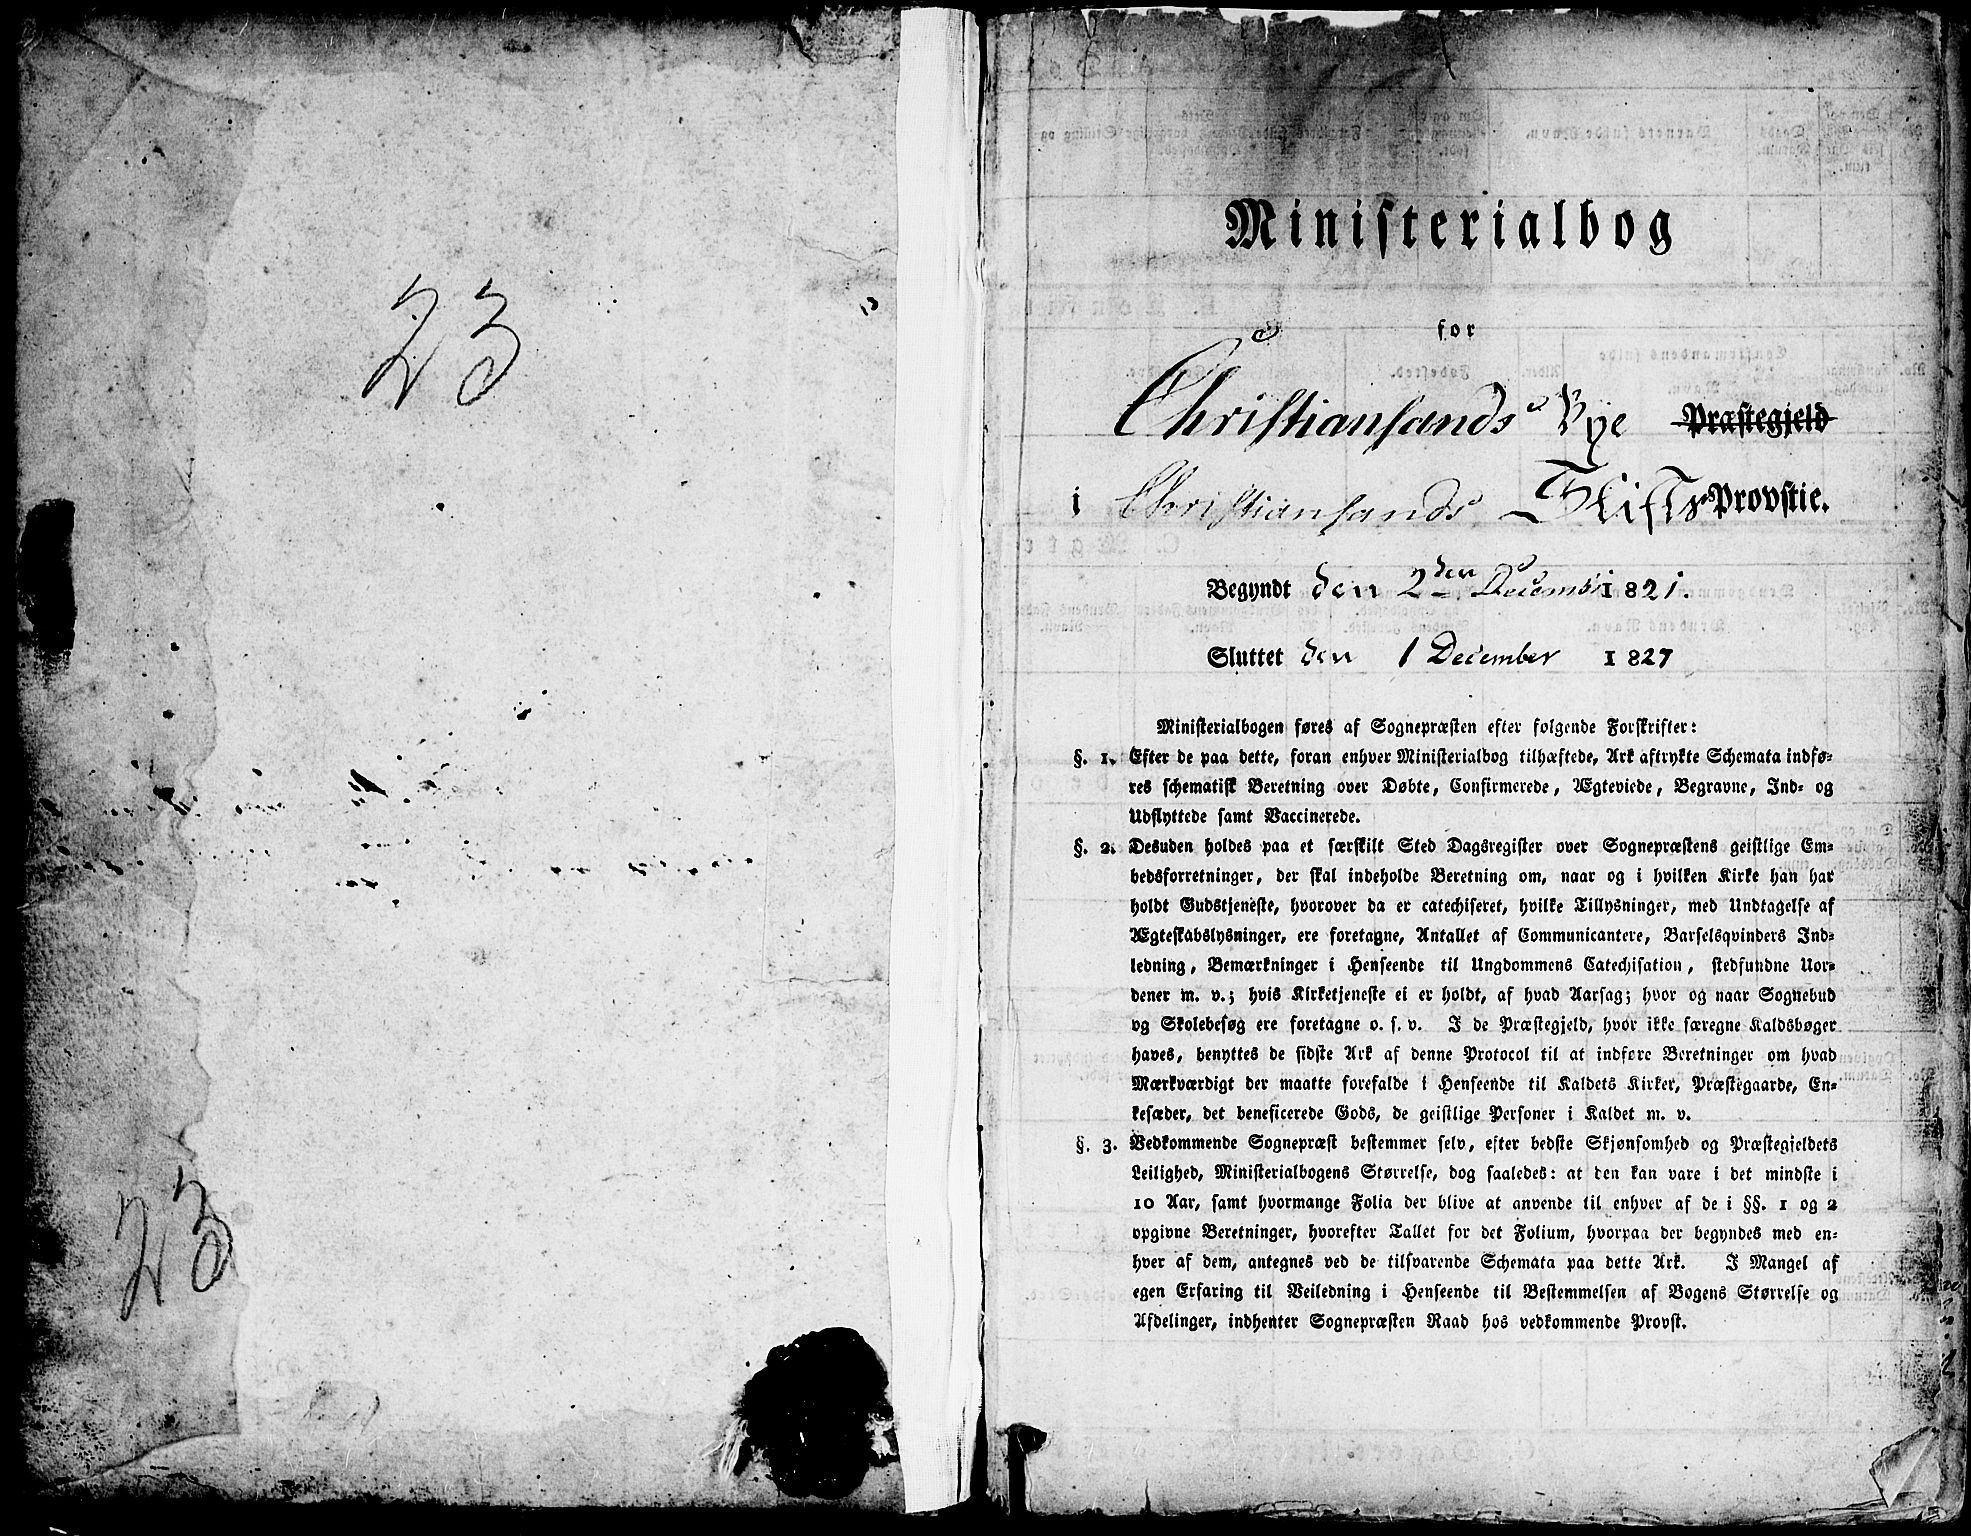 23
23
Ministerialbog
for
Christiansands Bye Præstegjeld
i Christiansands Stifts Provstie.
Begyndt den 2den December 1821.
Sluttet den 1 December 1827
Ministerialbogen føres af Sognepræsten efter følgende Forskrifter:
§. 1. Efter de paa dette, foran enhver Ministerialbog tilhæftede, Ark aftrykte Schemata indfø-
res schematisk Beretning over Døbte, Confirmerede, Ægteviede, Begravne, Ind- og
Udflyttede samt Vaccinerede.
§. 2. Desuden holdes paa et færskilt Sted Dagsregister over Sognepræstens geistlige Em-
bedsforretninger, der skal indeholde Beretning om, naar og i hvilken Kirke han har
holdt Gudstjeneste, hvorover da er catechiseret, hvilke Tillysninger, med Undtagelse af
Ægteskabslysninger, ere foretagne, Antallet af Communicantere, Barselsqvinders Ind-
ledning, Bemærkninger i Henseende til Ungdommens Catechisation, stedfundne Uor-
dener m. v.; hvis Kirketjeneste ei er holdt, af hvad Aarsag; hvor og naar Sognebud
og Skolebesøg ere foretagne o. s. v. I de Præstegjeld, hvor ikke færegne Kaldsbøger
haves, benyttes de sidste Ark af denne Protocol til at indføre Beretninger om hvad
Mærkværdigt der maatte forefalde i Henseende til Kaldets Kirker, Præstegaarde, En-
kesæder, det beneficerede Gods, de geistlige Personer i Kaldet m. v.
§. 3. Vedkommende Sognepræst bestemmer selv, efter bedste Skjønsomhed og Præstegjeldets
Leilighed, Ministerialbogens Størrelse, dog saaledes: at den kan vare i det mindste i
10 Aar, samt hvormange Folia der blive at anvende til enhver af de i §§. 1 og 2
opgivne Beretninger, hvorefter Tallet for det Folium, hvorpaa der begyndes med en-
hver af dem, antegnes ved de tilsvarende Schemata paa dette Ark. I Mangel af
egen Erfaring til Veiledning i Henseende til Bestemmelsen af Bogens Størrelse og
Afdelinger, indhenter Sognepræsten Raad hos vedkommende Provst.